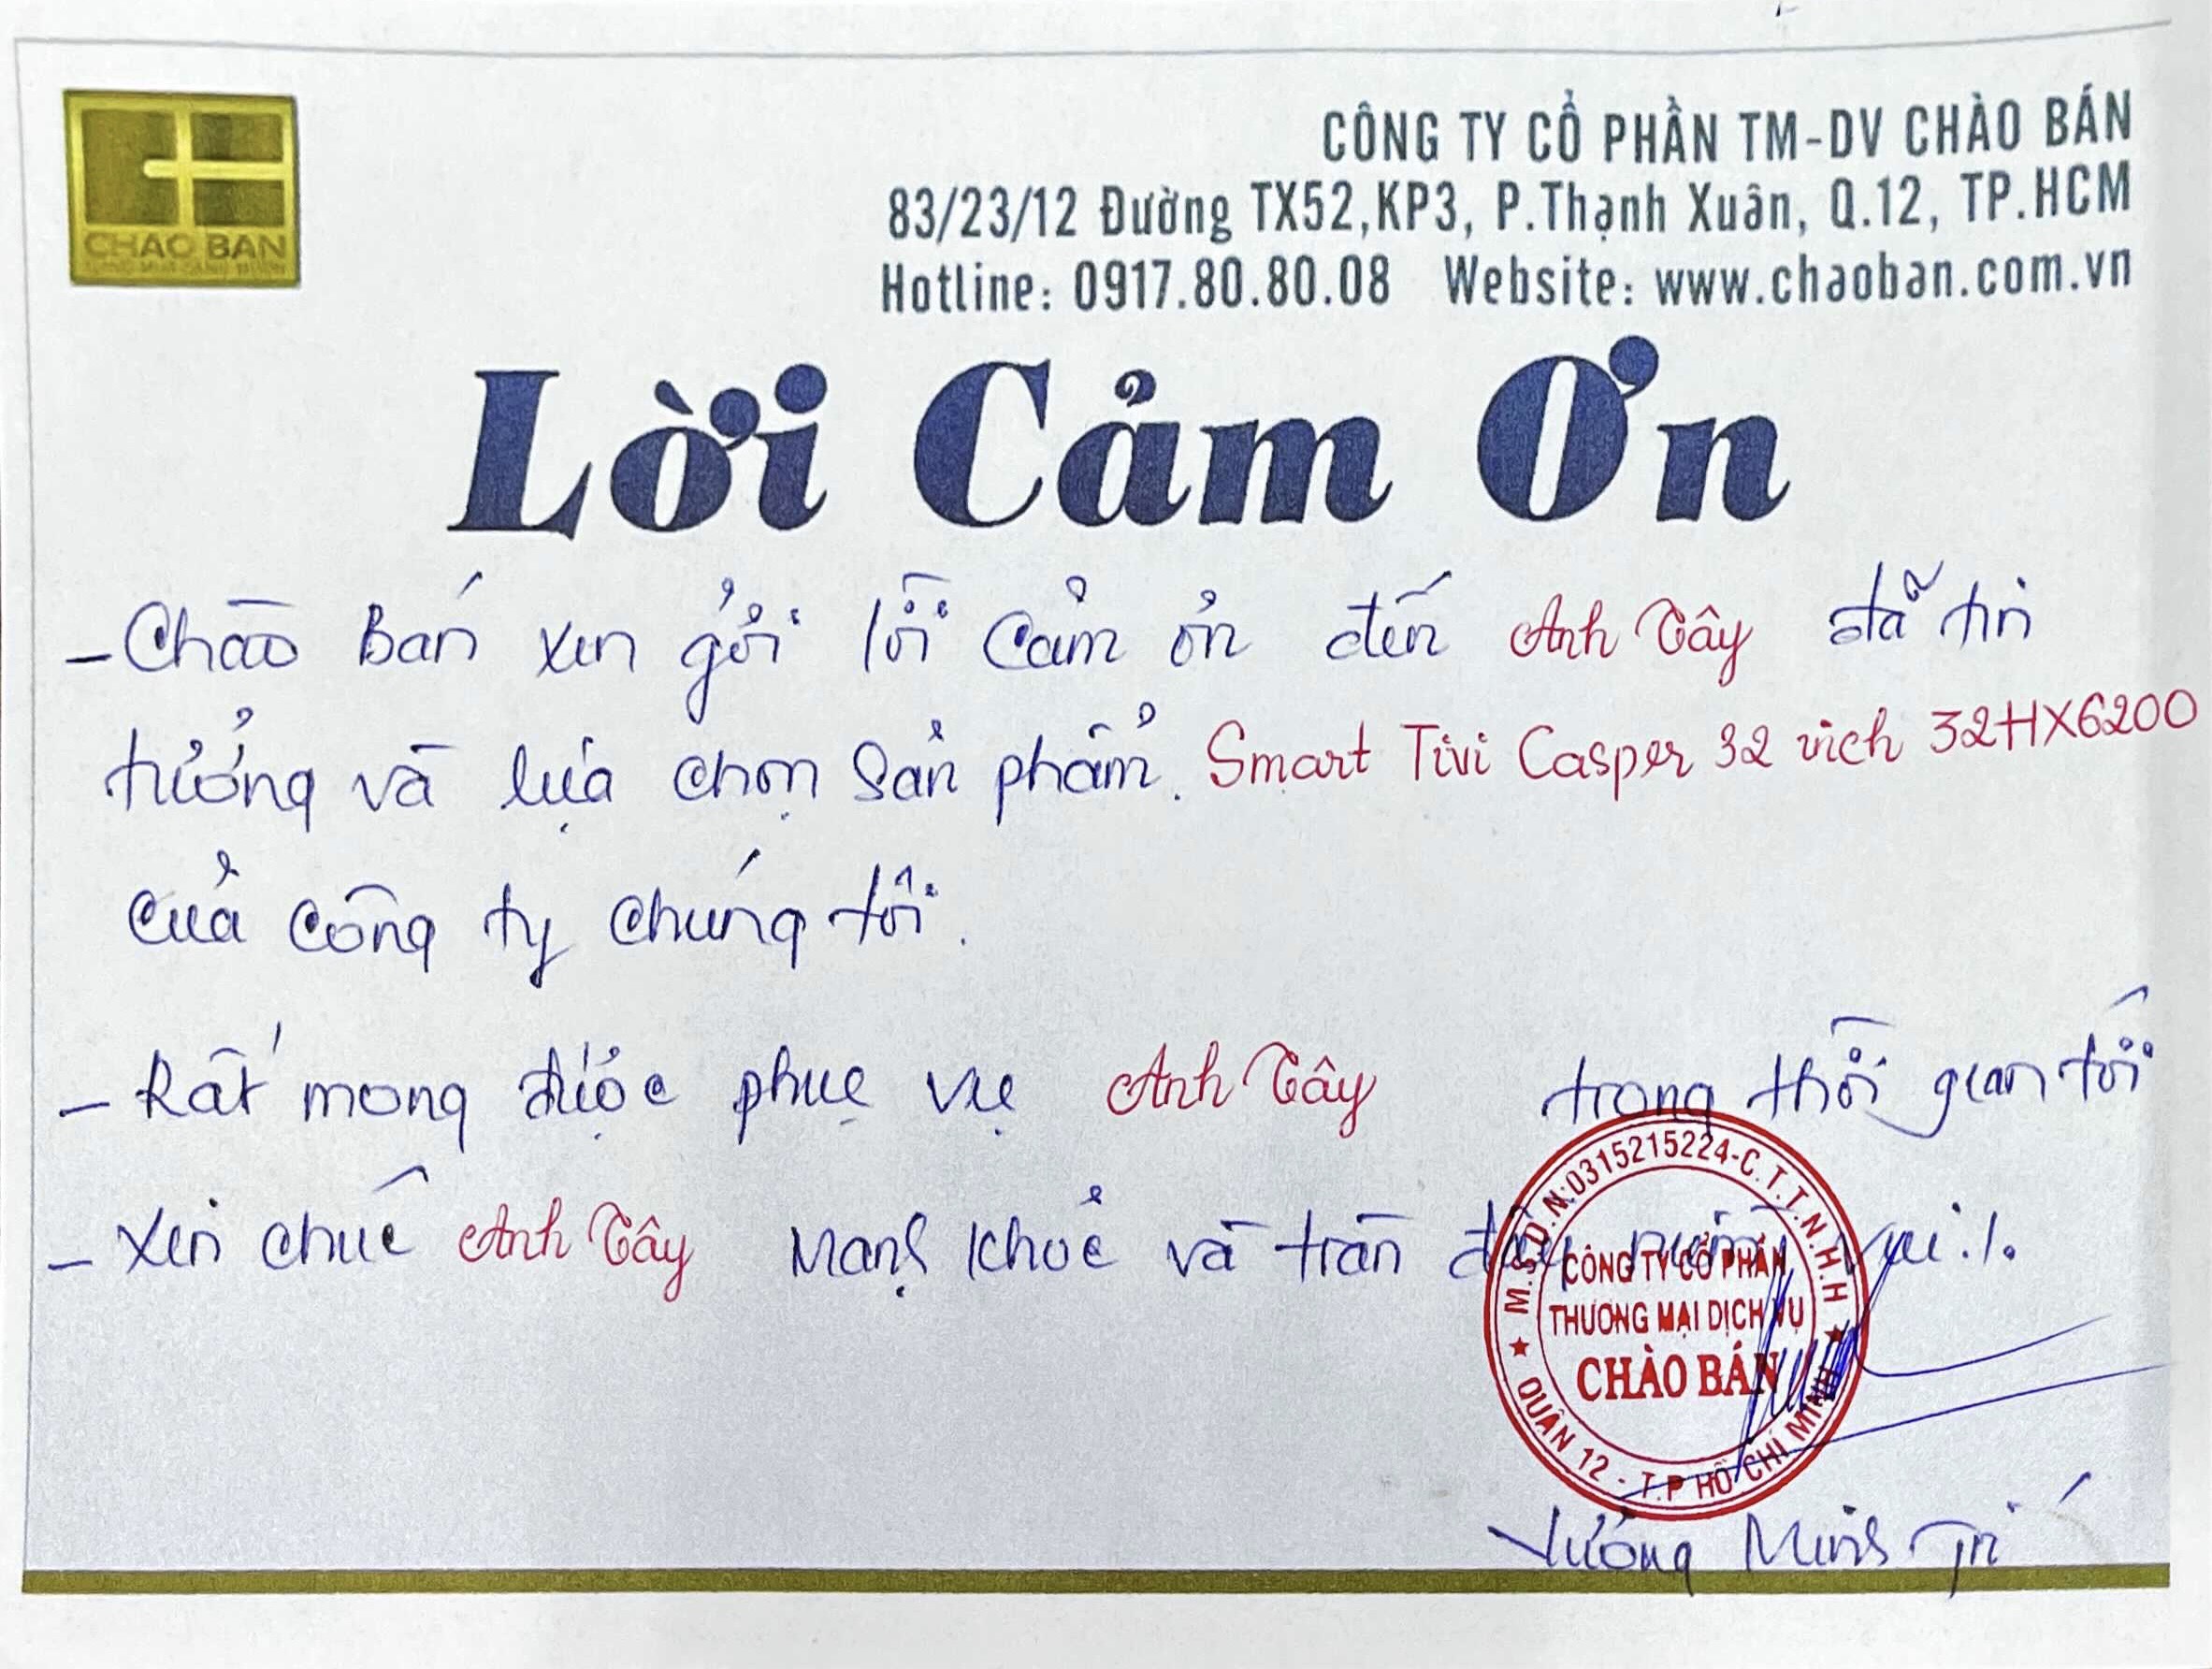 CHAO BAN
CÔNG TY CỔ PHẦN TM-DV CHÀO BÁN
83/23/12 Đường TX52,KP3, P.Thạnh Xuân, Q.12, TP.HCM
Hotline: 0917.80.80.08 Website: www.chaoban.com.vn
Lời Cảm Ơn
- Chào Bán xin gởi lời cảm ơn đến Anh Tây đã tin
tưởng và lựa chọn sản phẩm. Smart Tivi Casper 32 inch 32HX6200
của công ty chúng tôi.
- Rất mong được phục vụ Anh Tây trong thời gian tới
- Xin chúc Anh Tây mạnh khoẻ và tràn đầy niềm vui./.
M.S.D.N:0315215224-C.T.T.N.H.H
CÔNG TY CỔ PHẦN
THƯƠNG MẠI DỊCH VỤ
CHÀO BÁN
QUẬN 12 - T.P HỒ CHÍ MINH
Vương Minh Trí